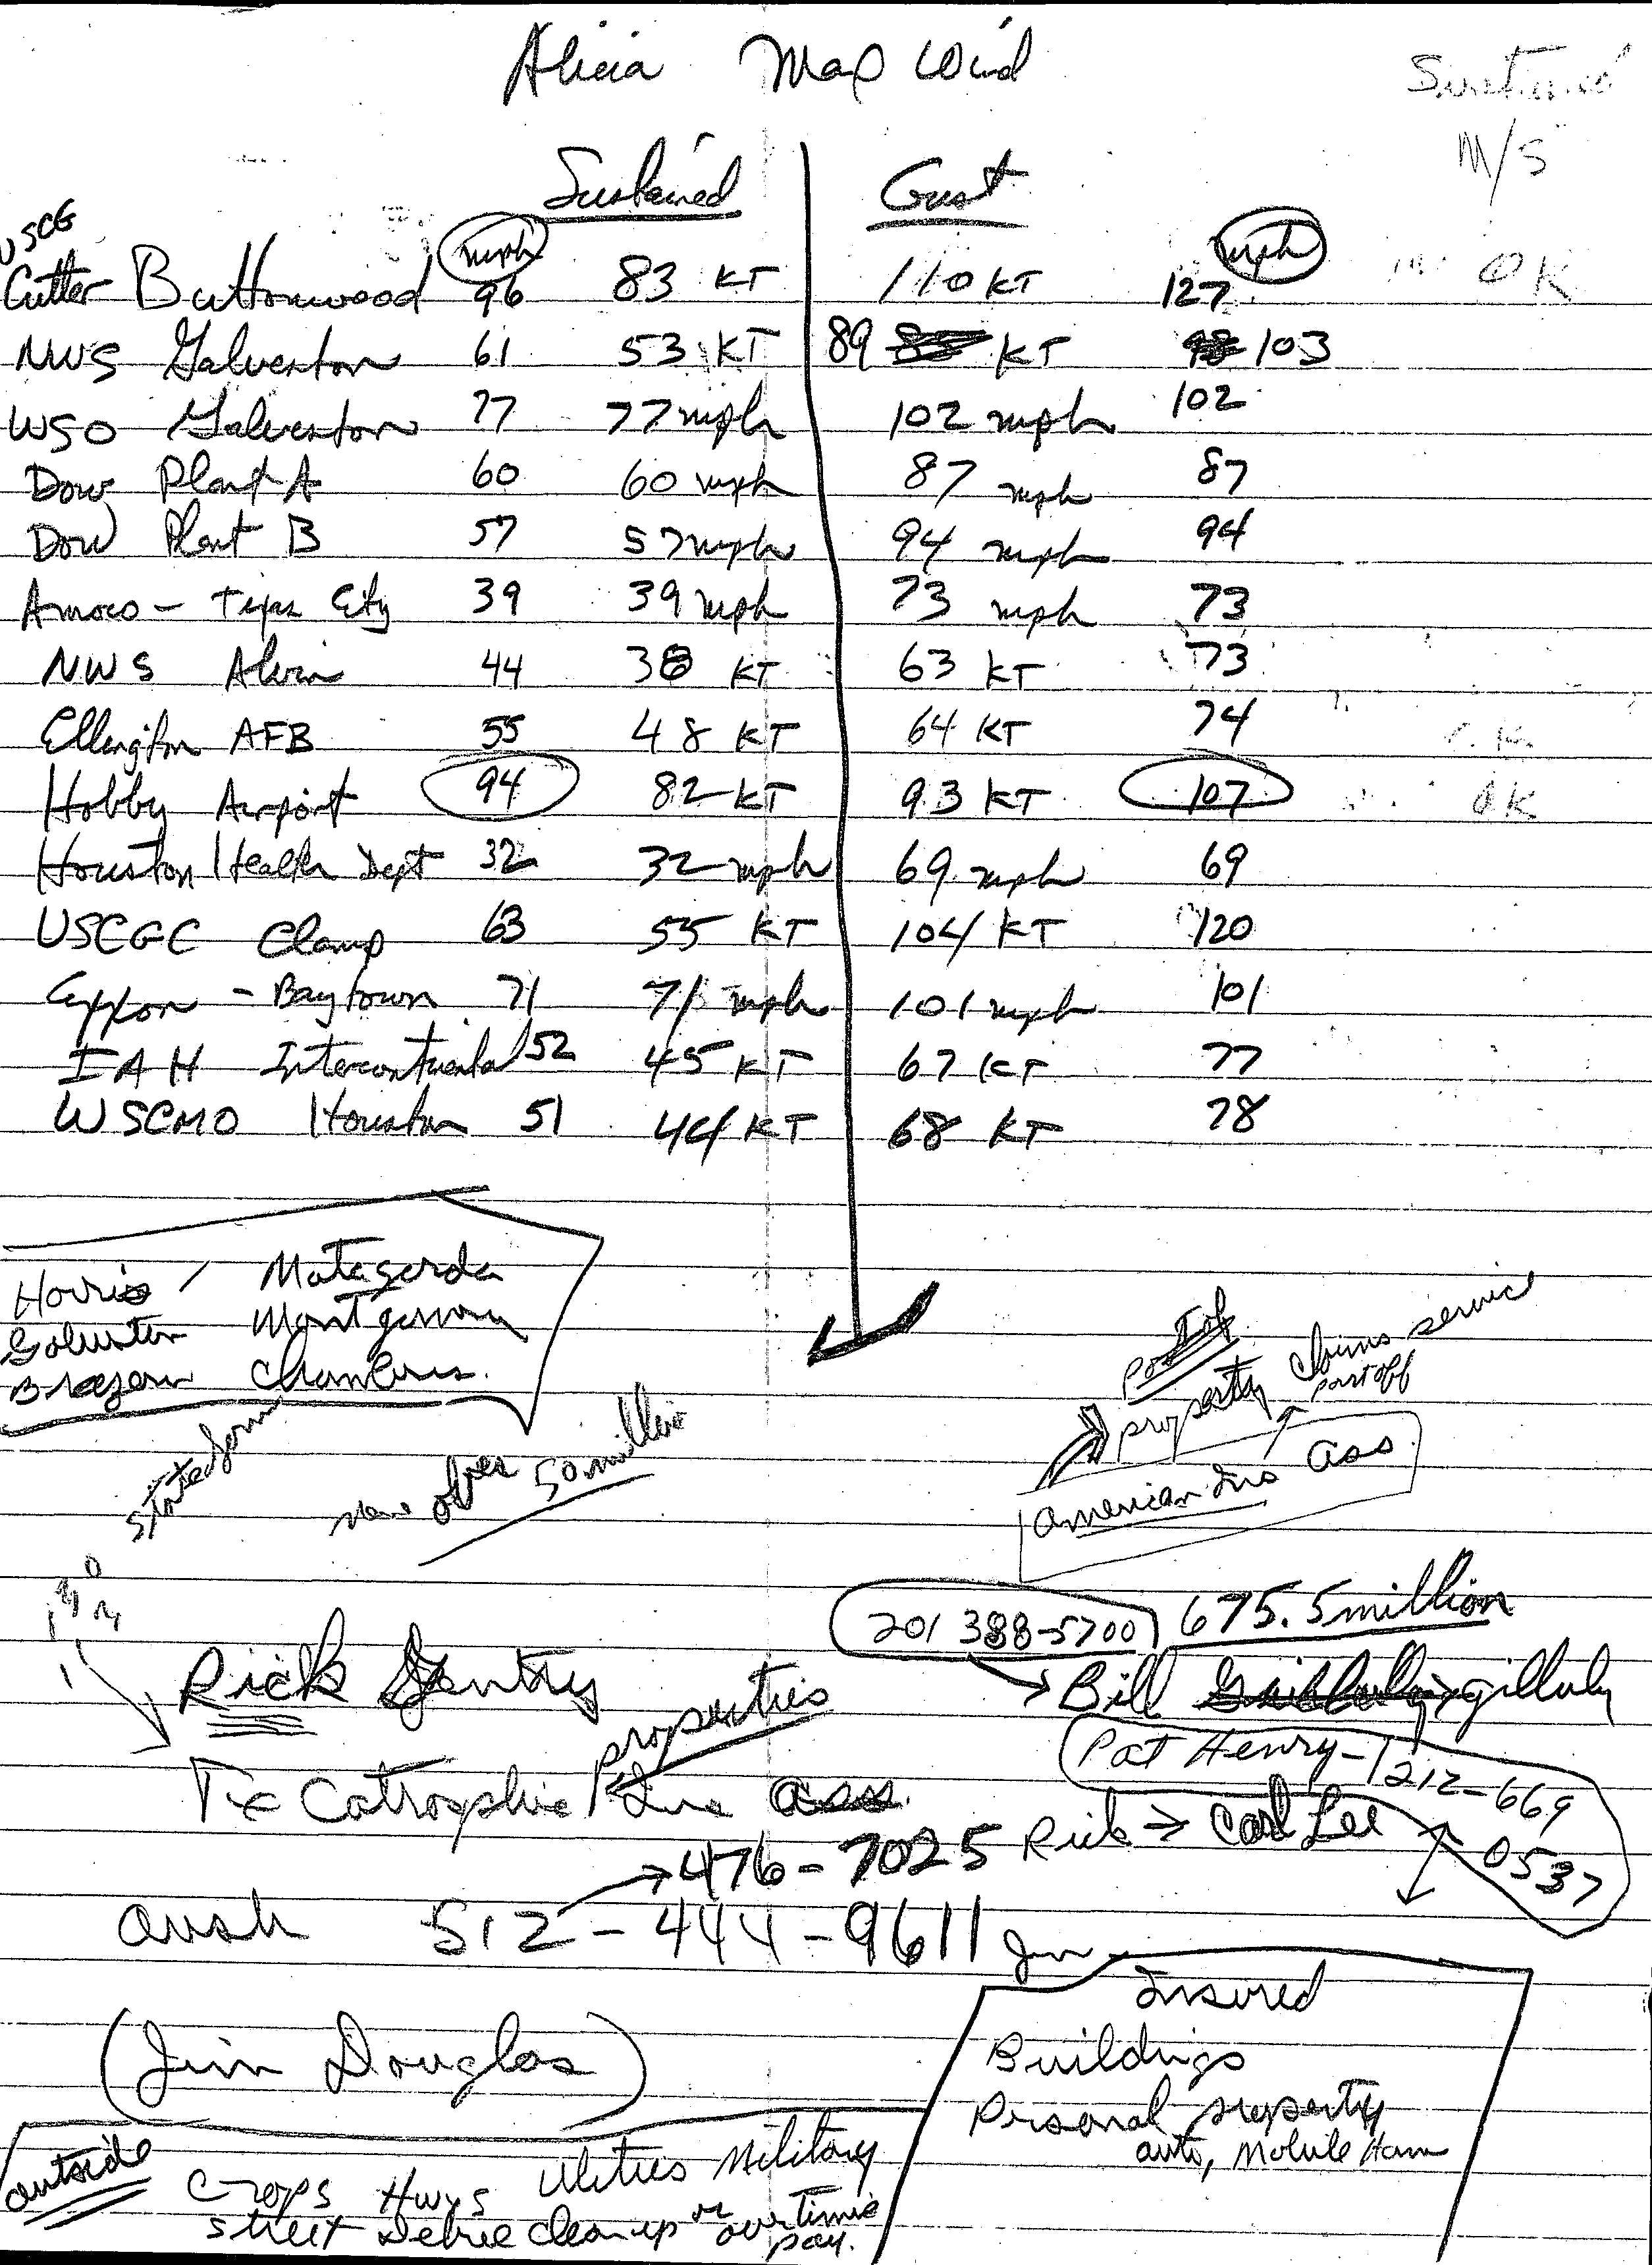 Alicia Max Wind
Sustained
M/S
Sustained Gust
USCG mph mph
Cutter Buttonwood 96 83 KT 110 KT 127 OK
NWS Galveston 61 53 KT 89 KT 103
WSO Galveston 77 77 mph 102 mph 102
Dow Plant A 60 60 mph 87 mph 87
Dow Plant B 57 57 mph 94 mph 94
Amoco - Texas City 39 39 mph 73 mph 73
NWS Alvin 44 38 KT 63 KT 73
Ellington AFB 55 48 KT 64 KT 74 O.K.
Hobby Airport 94 82 KT 93 KT 107 OK
Houston Health Dept 32 32 mph 69 mph 69
USCGC Clamp 63 55 KT 104 KT 120
Exxon - Baytown 71 71 mph 101 mph 101
IAH Intercontinental 52 45 KT 67 KT 77
WSCMO Houston 51 44 KT 68 KT 78
Harris Matagorda
Galveston Montgomery
Brazoria Chambers.
State farm
now over 50 million
part of
property claims service
part off
American Ins Ass.
201 388-5700 675.5 million
Rick Gentry
Bill gilluly
properties
Pat Henry - 1 212-669
0537
Tx Catrosphie Ins Ass.
476-7025 Rick → Carl Lee
Aust 512-444-9611 Jim
(Jim Douglas)
Insured
Buildings
Personal property
auto, Mobile Home
outside
Crops Hwys Utilities Military
street Debree clean up or overtime
pay.